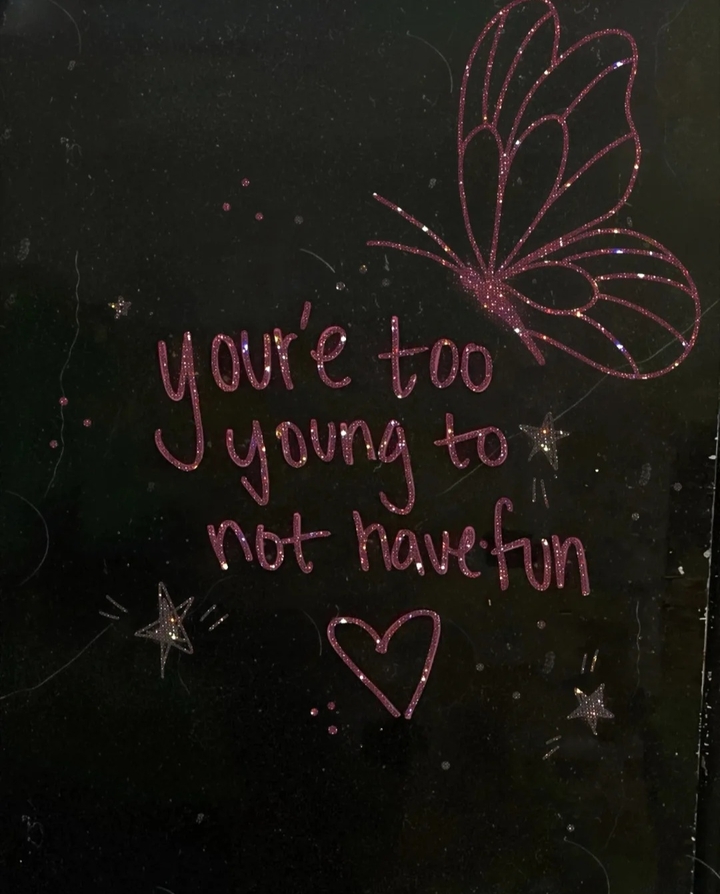 your'e too
young to
not have fun